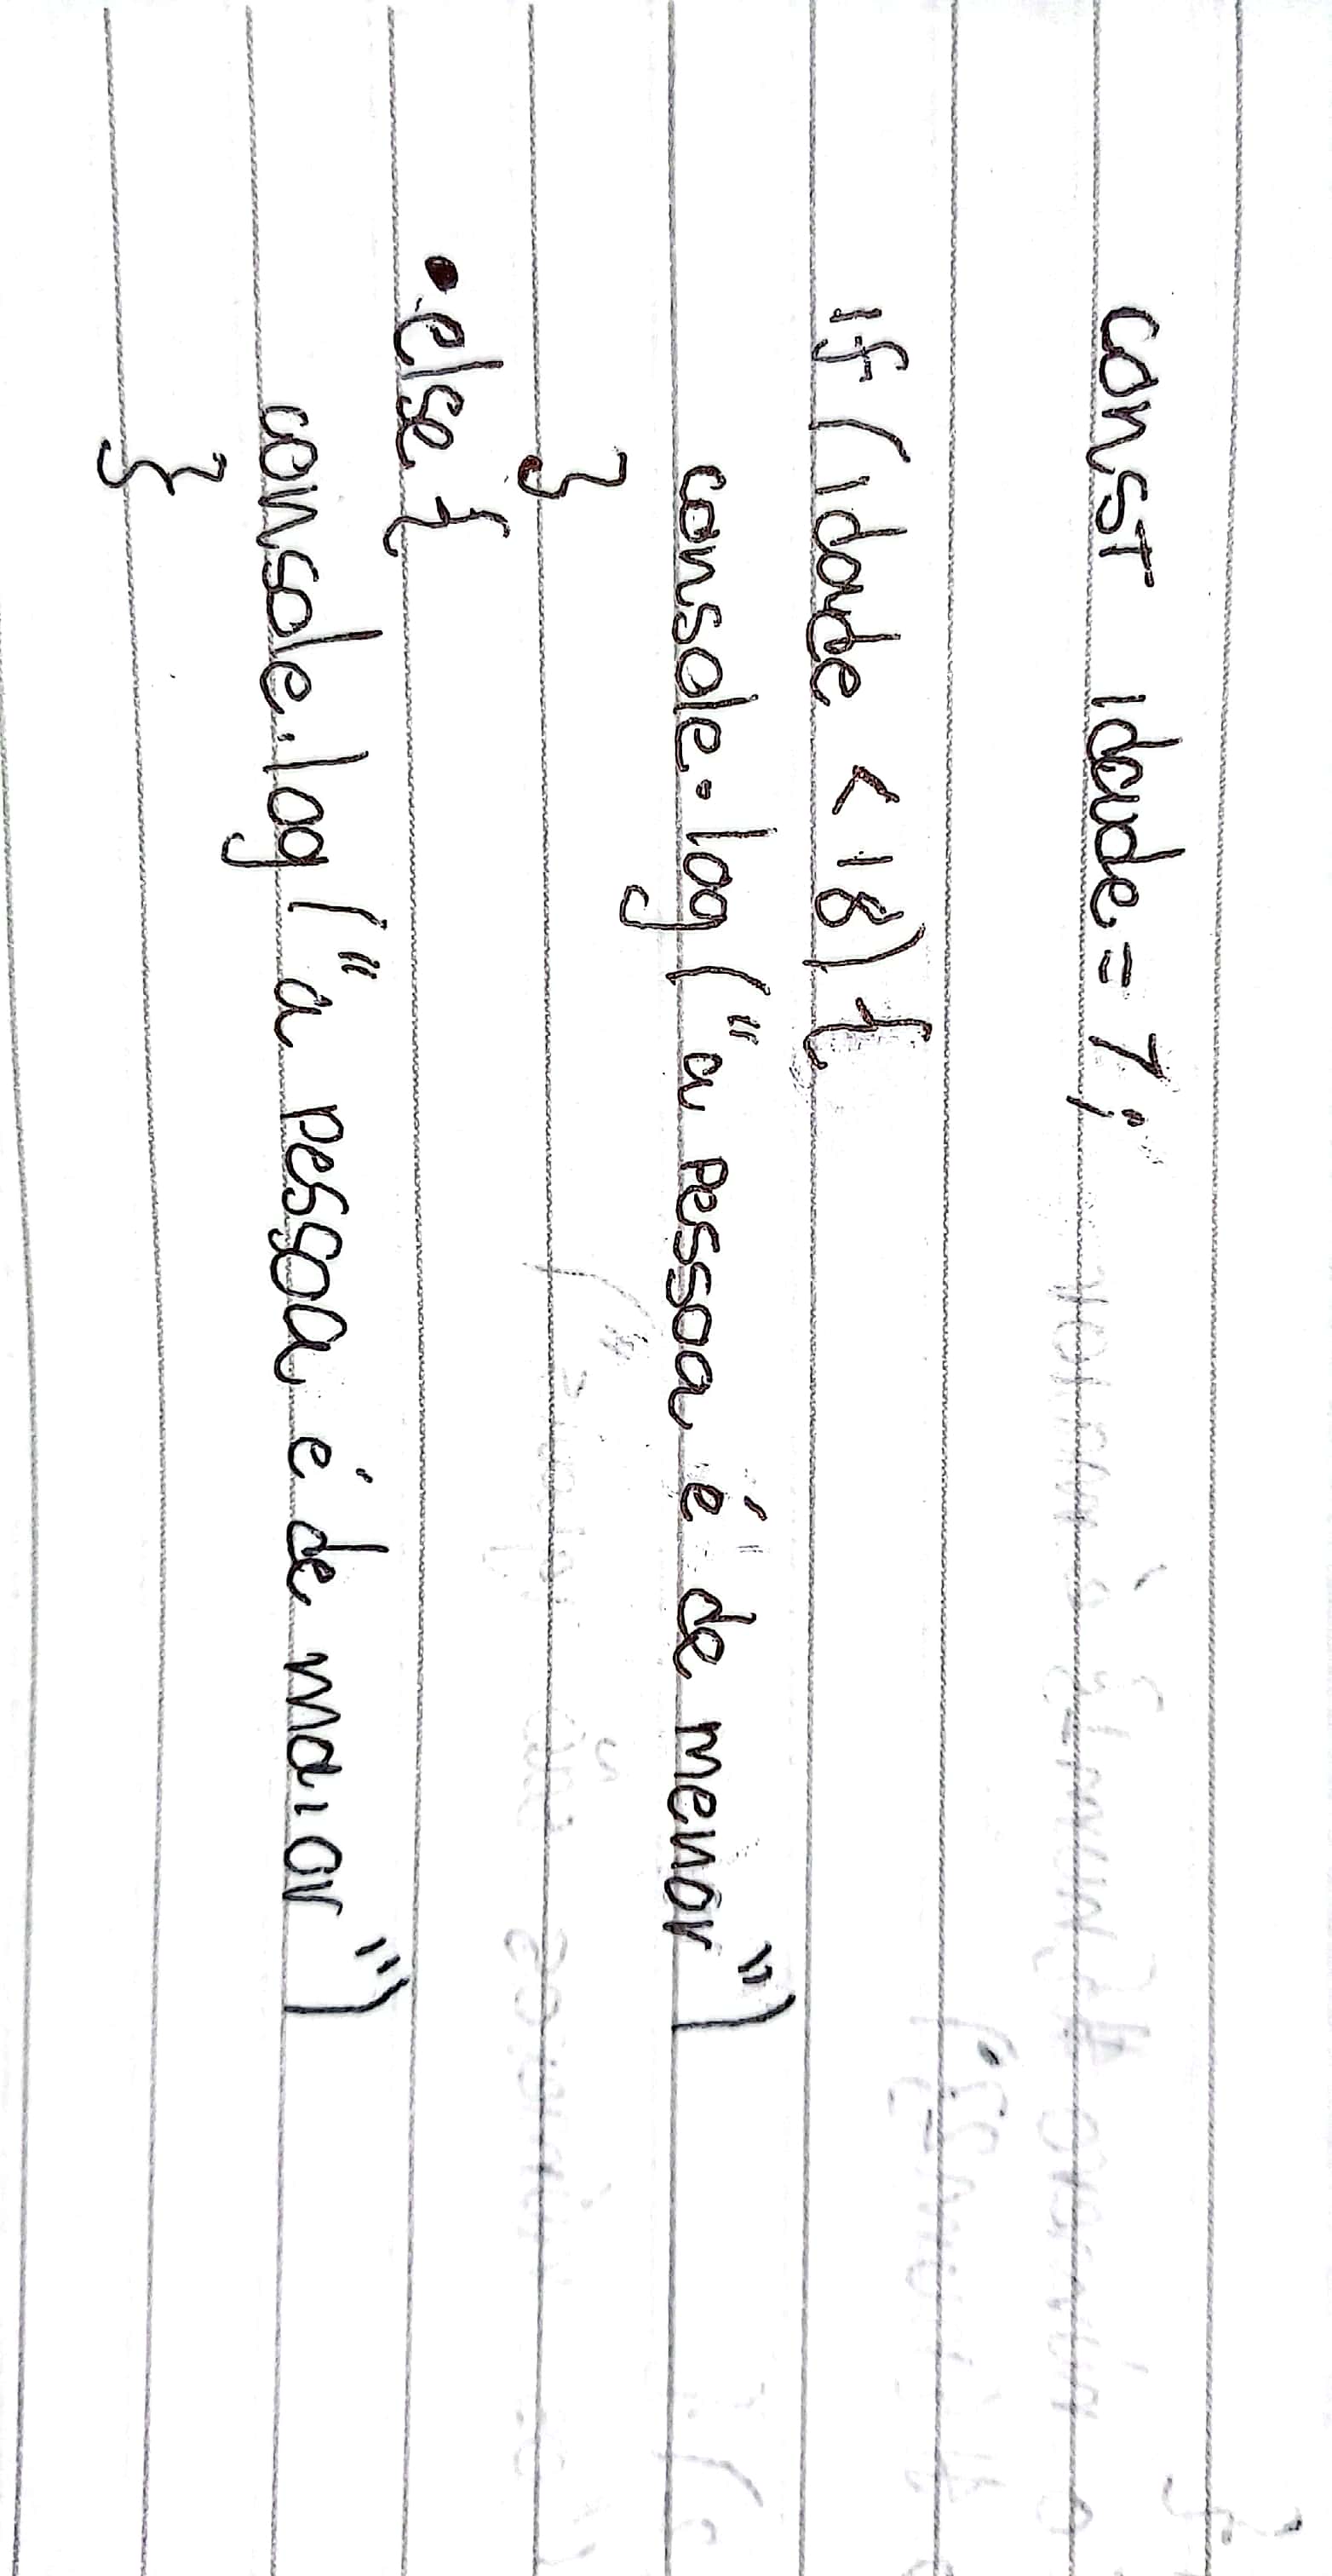 const idade = 7;
if (idade < 18) {
console.log("a pessoa é de menor")
}
else {
console.log("a pessoa é de maior")
}